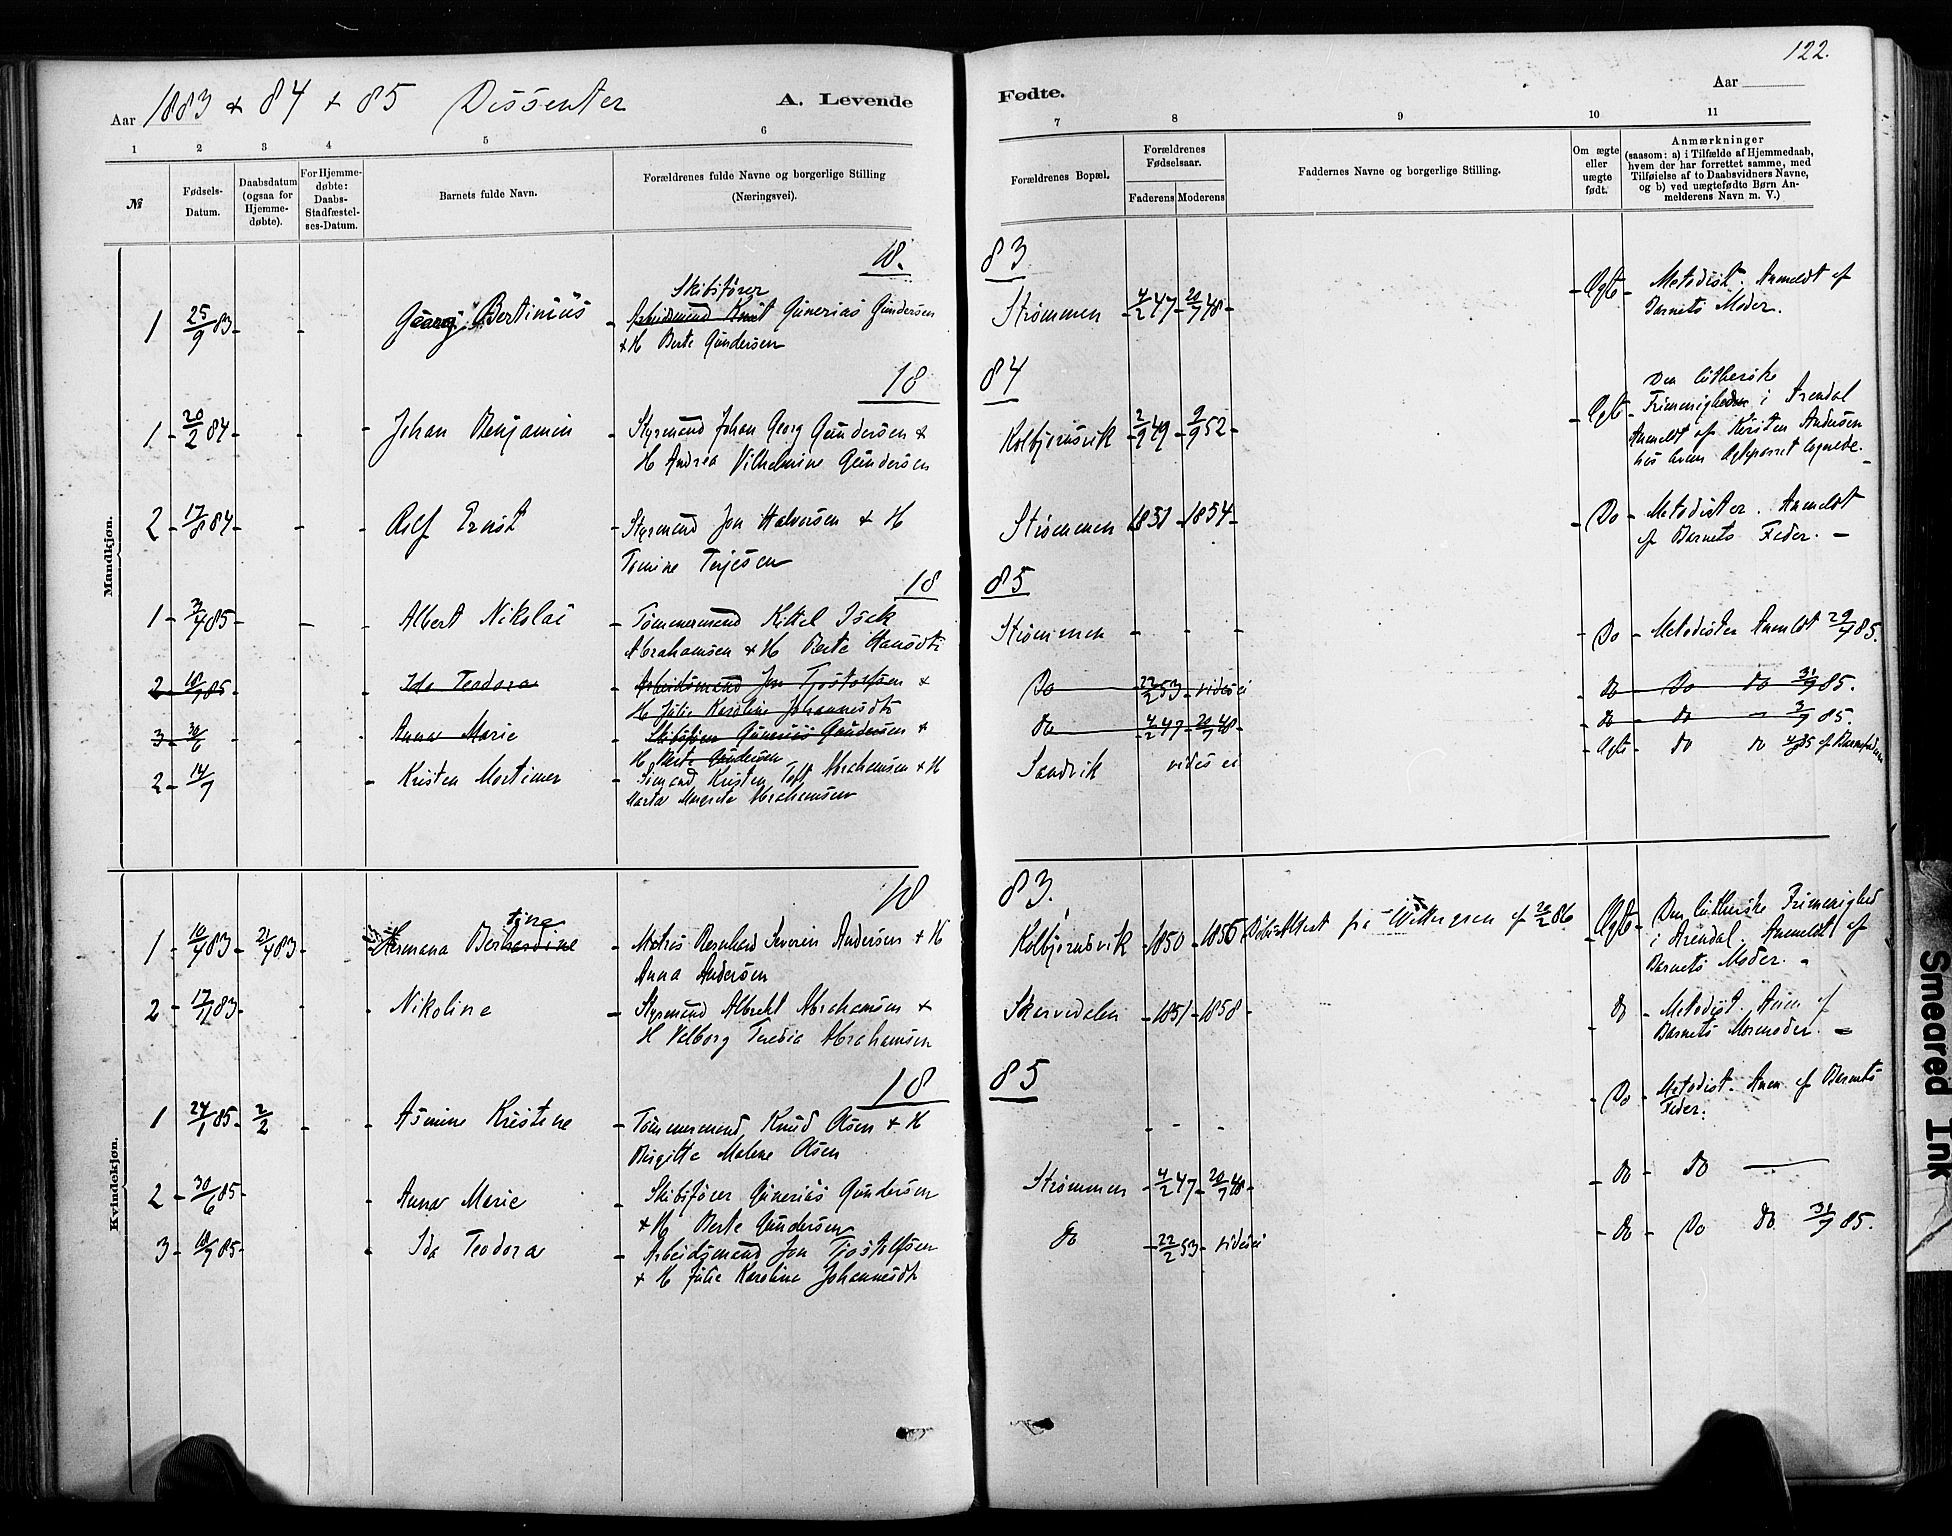 122.
Aar 1883 & 84 & 85 Dissenter
A. Levende Fødte.
Aar
1 2 3 4 5 6 7 8 9 10 11
№
Fødsels-Datum.
Daabsdatum (ogsaa for Hjemmedøbte).
For Hjemmedøbte: Daabs-Stadfæstelses-Datum.
Barnets fulde Navn.
Forældrenes fulde Navne og borgerlige Stilling (Næringsvei).
Forældrenes Bopæl.
Forældrenes Fødselsaar.
Faderens Moderens
Faddernes Navne og borgerlige Stilling.
Om ægte eller uægte født.
Anmærkninger
(saasom: a) i Tilfælde af Hjemmedaab, hvem der har forrettet samme, med Tilføielse af to Daabsvidners Navne, og b) ved uægtefødte Børn Anmelderens Navn m. V.)
Mandkjøn.
18. 83
1 25/9 83 Georg Bertinius Skibsfører
Arbeidsmand Knut Gunerius Gundersen Strømmen 4/2 47 20/7 48 Ægte Metodist. Anmeldt af
& H Berte Gundersen Barnets Moder.
18 84
1 20/2 84 Johan Benjamin Styrmand Johan Georg Gundersen & Kolbjørnsvik 2/9 49 9/9 52 Ægte Den lutherske
H Andrea Vilhelmine Gundersen Frimenighed i Arendal
Anmeldt af Kristen Andersen
hos hvem Ægteparret logerede.
2 17/8 84 Rolf Ernst Styrmand Jon Halvorsen & H Strømmen 1851 1854 Do Metodister. Anmeldt
Tomine Terjesen af Barnets Fader.
18 85
1 3/4 85 Albert Nikolai Tømmermand Kittel Isak Strømmen Do Metodister Anmeldt 29/4 85.
Abrahamsen & H Berte Hansdtr
2 18/7 85 Ida Teodora Arbeidsmand Jon Tjostolfsen & Do 22/2 53 vides ei do Do do 31/7 85.
H Julie Karoline Johannesdtr
3 30/6 Anna Marie Skibsfører Gunerius Gundersen & do 4/2 47 20/7 48 do do 3/7 85.
H Berte Gundersen
2 14/7 Kristen Mortimer Sømand Kristen Toft Abrahamsen & H Sandvik vides ei Ægte do do
Marta Margrete Abrahamsen
Kvindekjøn.
18 83.
1 10/4 83 21/4 83 Hermana Bernhardine tine Matros Bernhard Severin Andersen & H Kolbjørnsvik 1850 1856 Dåbsattest fra af 20/2 86 Ægte Den lutherske Frimenighed
Anna Andersen i Arendal. Anmeldt af
Barnets Moder.
2 17/7 83 Nikoline Styrmand Albrekt Abrahamsen & Skarvedalen 1851 1858 do Metodist. Anm af
H Valborg Teresia Abrahamsen Barnets Mormoder.
18 85
1 24/1 85 2/2 Asmine Kristine Tømmermand Knud Olsen & H Do Metodist. Anm af Barnets
Birgitte Malene Olsen Fader.
2 30/6 85 Anna Marie Skibsfører Gunerius Gundersen Strømmen 4/2 47 20/7 48 do do
& H Berte Gundersen
3 18/7 85 Ida Teodora Arbeidsmand Jon Tjostolfsen do 22/2 53 vides ei do Do do 31/7 85.
& H Julie Karoline Johannesdt
Smeared Ink